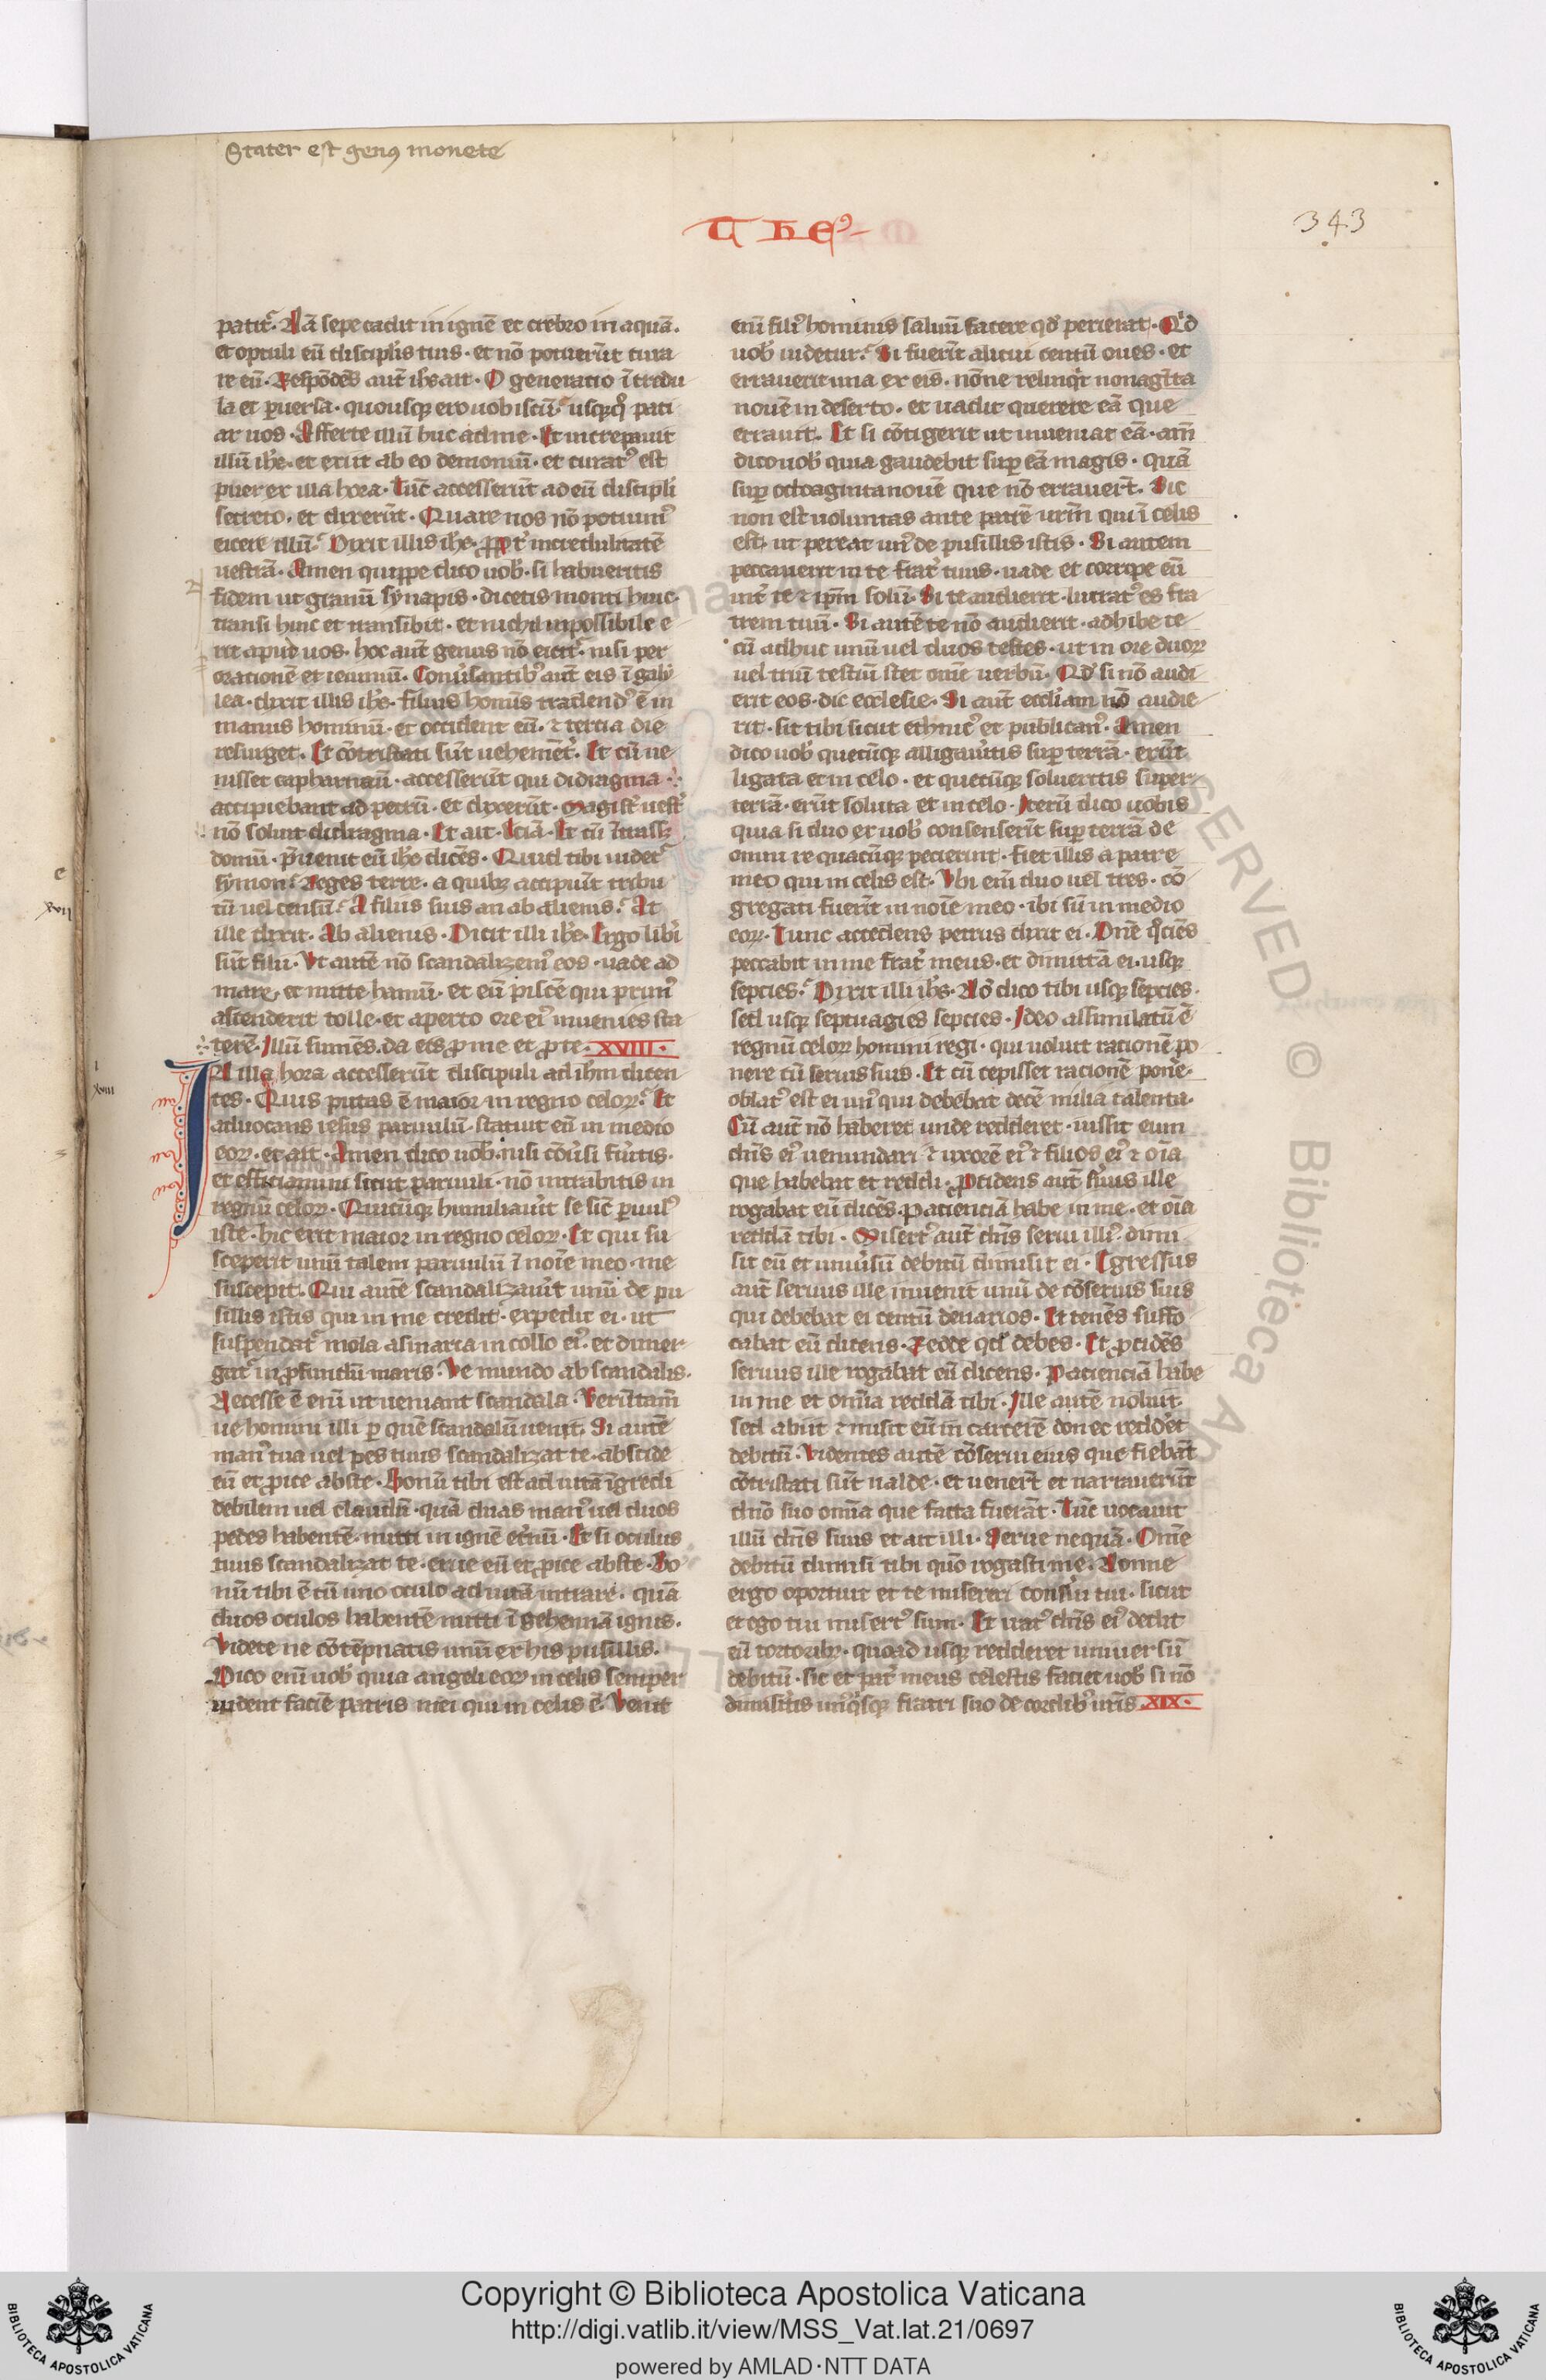 Stater est genꝰ monete
THEꝰ
343
patit᷑. Nā sepe cadit in ignē et crebro in aquā.
et optuli eū discipl̓is tuis · et nō potuerūt cura
re eū. Respōdēs aut̄ ih̄s ait. O generatio ītredu
la et ꝑuersa · quousqꝫ ero uobiscū᷑ usqꝫqͦ pati
ar uos. Afferte illū huc ad me. Et increpauit
illū ih̄c · et exiit ab eo demoniū · et curatꝰ est
puer ex illa hora. Tūc accesserūt ad eū discipl̓i
secreto, et dixerūt. Quare nos nō potuimꝰ
eicere illū᷑ Dixit illis ih̄c. ꝓpt̓ incredulitatē
uestrā. Amen quippe dico uob̓. si habueritis
fidem ut granū synapis. dicetis monti huic
transi hinc et transibit. et nichil inpossibile e
rit apud uos. hoc aut̄ genus nō eicit᷑. nisi per
orationē et ieiuniū. Conūsantibꝰ aut̄ eis ī galy
lea. dixit illis ih̄c. filius hominis tradendꝰ ē in
manus hominū. et occident eū. ⁊ tertia die
resurget. Et cōtristati sūt uehemēt̓. Et cū ue
nisset capharnaū. accesserūt qui didragma
accipiebant ad petrū. et dixerūt. Magist̓ uest̓
nō soluit didragma. Et ait. Eciā. Et cū ītrass;
domū. p̄uenit eū ih̄c dicēs. Quid tibi uidet᷑
symon᷑ Reges terre. a quibꝫ accipiūt tribu
tū uel censū᷑ A filiis suis an ab alienis᷑ At
ille dixit. Ab alienis. Dicit illi ih̄c. Ergo lib̓i
sūt filii. Vt autē nō scandalizemꝰ eos. uade ad
mare, et mitte hamū. et eū piscē qui primꝰ
ascenderit tolle. et aperto ore eiꝰ inuenies sta
terē. Illū sumēs. da eis ꝓ me et ꝓ te. XVIII.
IN illa hora accesserūt discipuli ad ih̄m dicen
tes. Quis putas ē maior in regno celoꝝ᷑ Et
aduocans iesus paruulū. statuit eū in medio
eoꝝ. et ait. Amen dico uob̓. nisi cōūsi fūitis.
et efficiamini sicut paruuli. nō intrabitis in
regnū celoꝝ. Quicūqꝫ humiliaūit se sic̄ ꝑuulꝰ
iste. hic erit maior in regno celoꝝ. Et qui su
sceperit unū talem paruulū ī noīe meo. me
suscepit. Qui autē scandalizaūit unū de pu
sillis istis qui in me credūt. expedit ei. ut
suspendat᷑ mola asinaria in collo eiꝰ. et dimer
gat᷑ in ꝓfundū maris. Ve mundo ab scandalis.
Necesse ē enī ut ueniant scandala. Verūtam̄
ue homini illi ꝑ quē scandalū uenit. Si autē
manꝰ tua uel pes tuus scandalizat te. abscide
eū et ꝓice abs te. Bonū tibi est ad uitā īgredi
debilem uel claudū. quā duas manꝰ uel duos
pedes habentē. mitti in ignē et̓nū. Et si oculus
tuus scandalizat te. erue eū et ꝓice abs te. Bo
nū tibi ē cū uno oculo ad uitā intrare. quā
duos oculos habentē mitti ī gehennā ignis.
Videte ne cōtēpnatis unū ex his pusillis.
Dico enī uob̓ quia angeli eoꝝ in celis semper
uident faciē patris mei qui in celis ē. Venit
enī filiꝰ hominis saluū facere qd̓ perierat. Qͥd
uob̓ uidetur᷑ Si fuerīt alicui centū oues. et
errauerit una ex eis. nōne relinqͥt nonagīta
nouē in deserto. et uadit querere eā que
errauit. Et si cōtigerit ut inueniat eā. am̄
dico uob̓ quia gaudebit suꝑ eā magis. quā
suꝑ octoaginta nouē que nō errauer̄t. Sic
non est uoluntas ante patrē ur̄m qui ī celis
est. ut pereat unꝰ de pusillis istis. Si autem
peccauerit in te frat̓ tuus. uade et corripe eū
int̓ te ⁊ ip̄m solū. Si te audierit. lucratꝰ es fra
trem tuū. Si autē te nō audierit. adhibe te
cū adhuc unū uel duos testes. ut in ore duoꝝ
uel triū testiū stet om̄e uerbū. Qd̓ si nō audi
erit eos. dic ecclesie. Si aut̄ eccl̓iam nō audie
rit. sit tibi sicut ethnicꝰ et publicanꝰ. Amen
dico uob̓ quecūqꝫ alligaūitis suꝑ terrā. erūt
ligata et in celo. et quecūqꝫ solueritis super
terrā. erūt soluta et in celo. Iterū dico uobis
quia si duo ex uob̓ consenserīt suꝑ terrā de
omni re quacūqꝫ pecierint. fiet illis a patre
meo qui in celis est. Vbi enī duo uel tres. cō
gregati fuerīt in noīe meo. ibi sū in medio
eoꝝ. Tunc accedens petrus dixit ei. Dn̄e qͦciēs
peccabit in me frat̓ meus. et dimittā ei. usqꝫ
septies᷑ Dixit illi ih̄s. Nō dico tibi usqꝫ septies.
sed usqꝫ septuagies septies. Ideo assimilatū ē
regnū celoꝝ homini regi. qui uoluit rationē po
nere cū seruis suis. Et cū cepisset racionē pone.
oblatꝰ est ei unꝰ qui debebat decē milia talenta.
Cū aut̄ nō haberet unde redderet. iussit eum
dn̄s eiꝰ uenundari ⁊ uxorē eiꝰ ⁊ filios eiꝰ ⁊ oīa
que habebat et reddi. ꝓcidens aut̄ s̓uus ille
rogabat eū dicēs. Pacienciā habe in me. et oīa
reddā tibi. Misertꝰ aut̄ dn̄s serui illiꝰ. dimi
sit eū et uniūsū debitū dimisit ei. Egressus
aut̄ seruus ille inuenit unū de cōseruis suis
qui debebat ei centū denarios. Et tenēs suffo
cabat eū dicens. Redde qd̓ debes. Et ꝓcidēs
seruus ille rogabat eū dicens. Pacienciā habe
in me et om̄ia reddā tibi. Ille autē noluit.
sed abiit ⁊ misit eū in carcerē donec redd̓et
debitū. Videntes autē cōserui eius que fiebāt
cōtristati sūt ualde. et uener̄t et narrauerūt
dn̄o suo om̄ia que facta fuerāt. Tūc uocauit
illū dn̄s suus et ait illi. Serue nequā. Om̄e
debitū dimisi tibi quō rogasti me. Nonne
ergo oportuit et te misereri consūi tui. sicut
et ego tui misertꝰ sum. Et iratꝰ dn̄s eiꝰ dedit
eū tortoribꝫ. quoad usqꝫ redderet uniuersū
debitū. sic et pat̓ meus celestis faciet uob̓ si nō
dimisitis unꝰqͥsqꝫ fratri suo de cordibꝰ ur̄is. XIX.
e
xvii
xviii
Copyright © Biblioteca Apostolica Vaticana
http://digi.vatlib.it/view/MSS_Vat.lat.21/0697
powered by AMLAD·NTT DATA
BIBLIOTECA APOSTOLICA VATICANA
BIBLIOTECA APOSTOLICA VATICANA